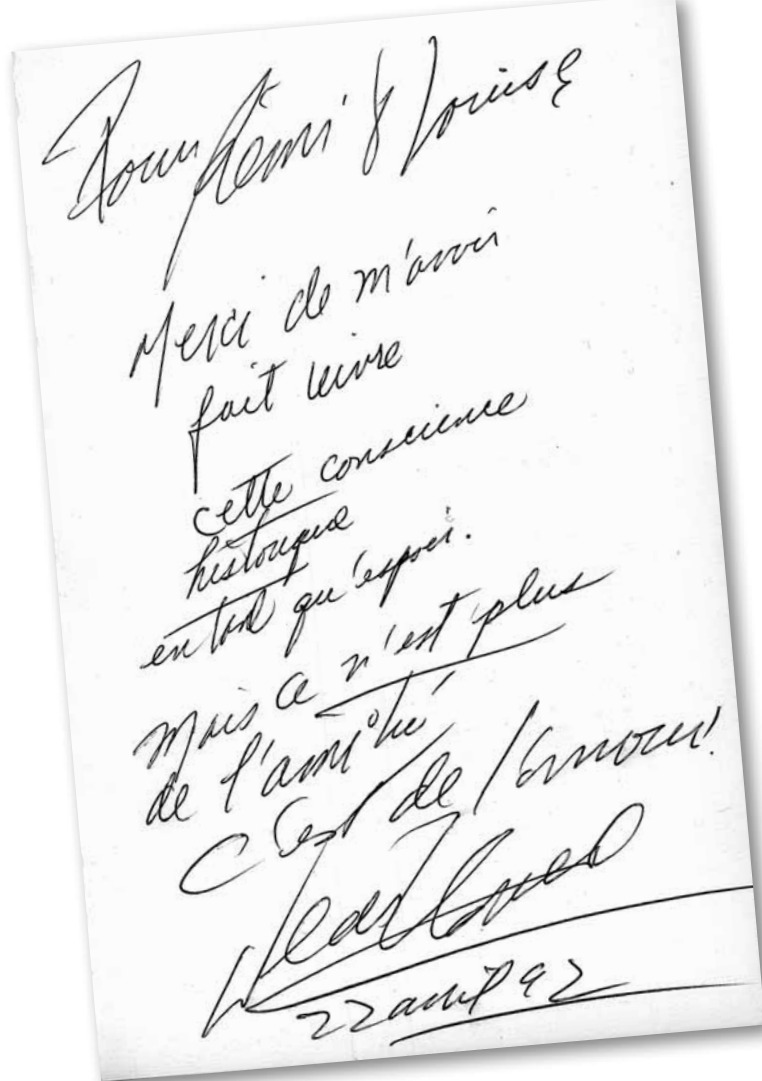 Pour Rémi & Louise
Merci de m'avoir
fait vivre
cette conscience
historique
en tant qu'espoir.
Mais ce n'est plus
de l'amitié
C'est de l'amour!
22 avril 92